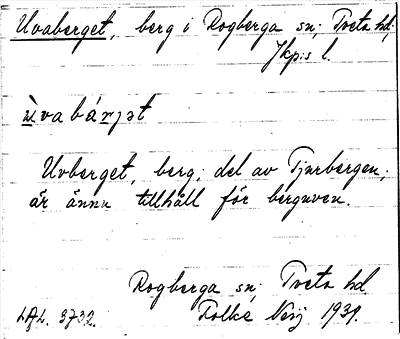 Uvaberget, berg i Rogberga sn; Tveta hd;
Jkp:s l.
ùvabárjət
Uvberget, berg; del av Tjurbergen;
är ännu tillhåll för berguven.
Rogberga sn; Tveta hd
LAL. 3732. Folke 1939.